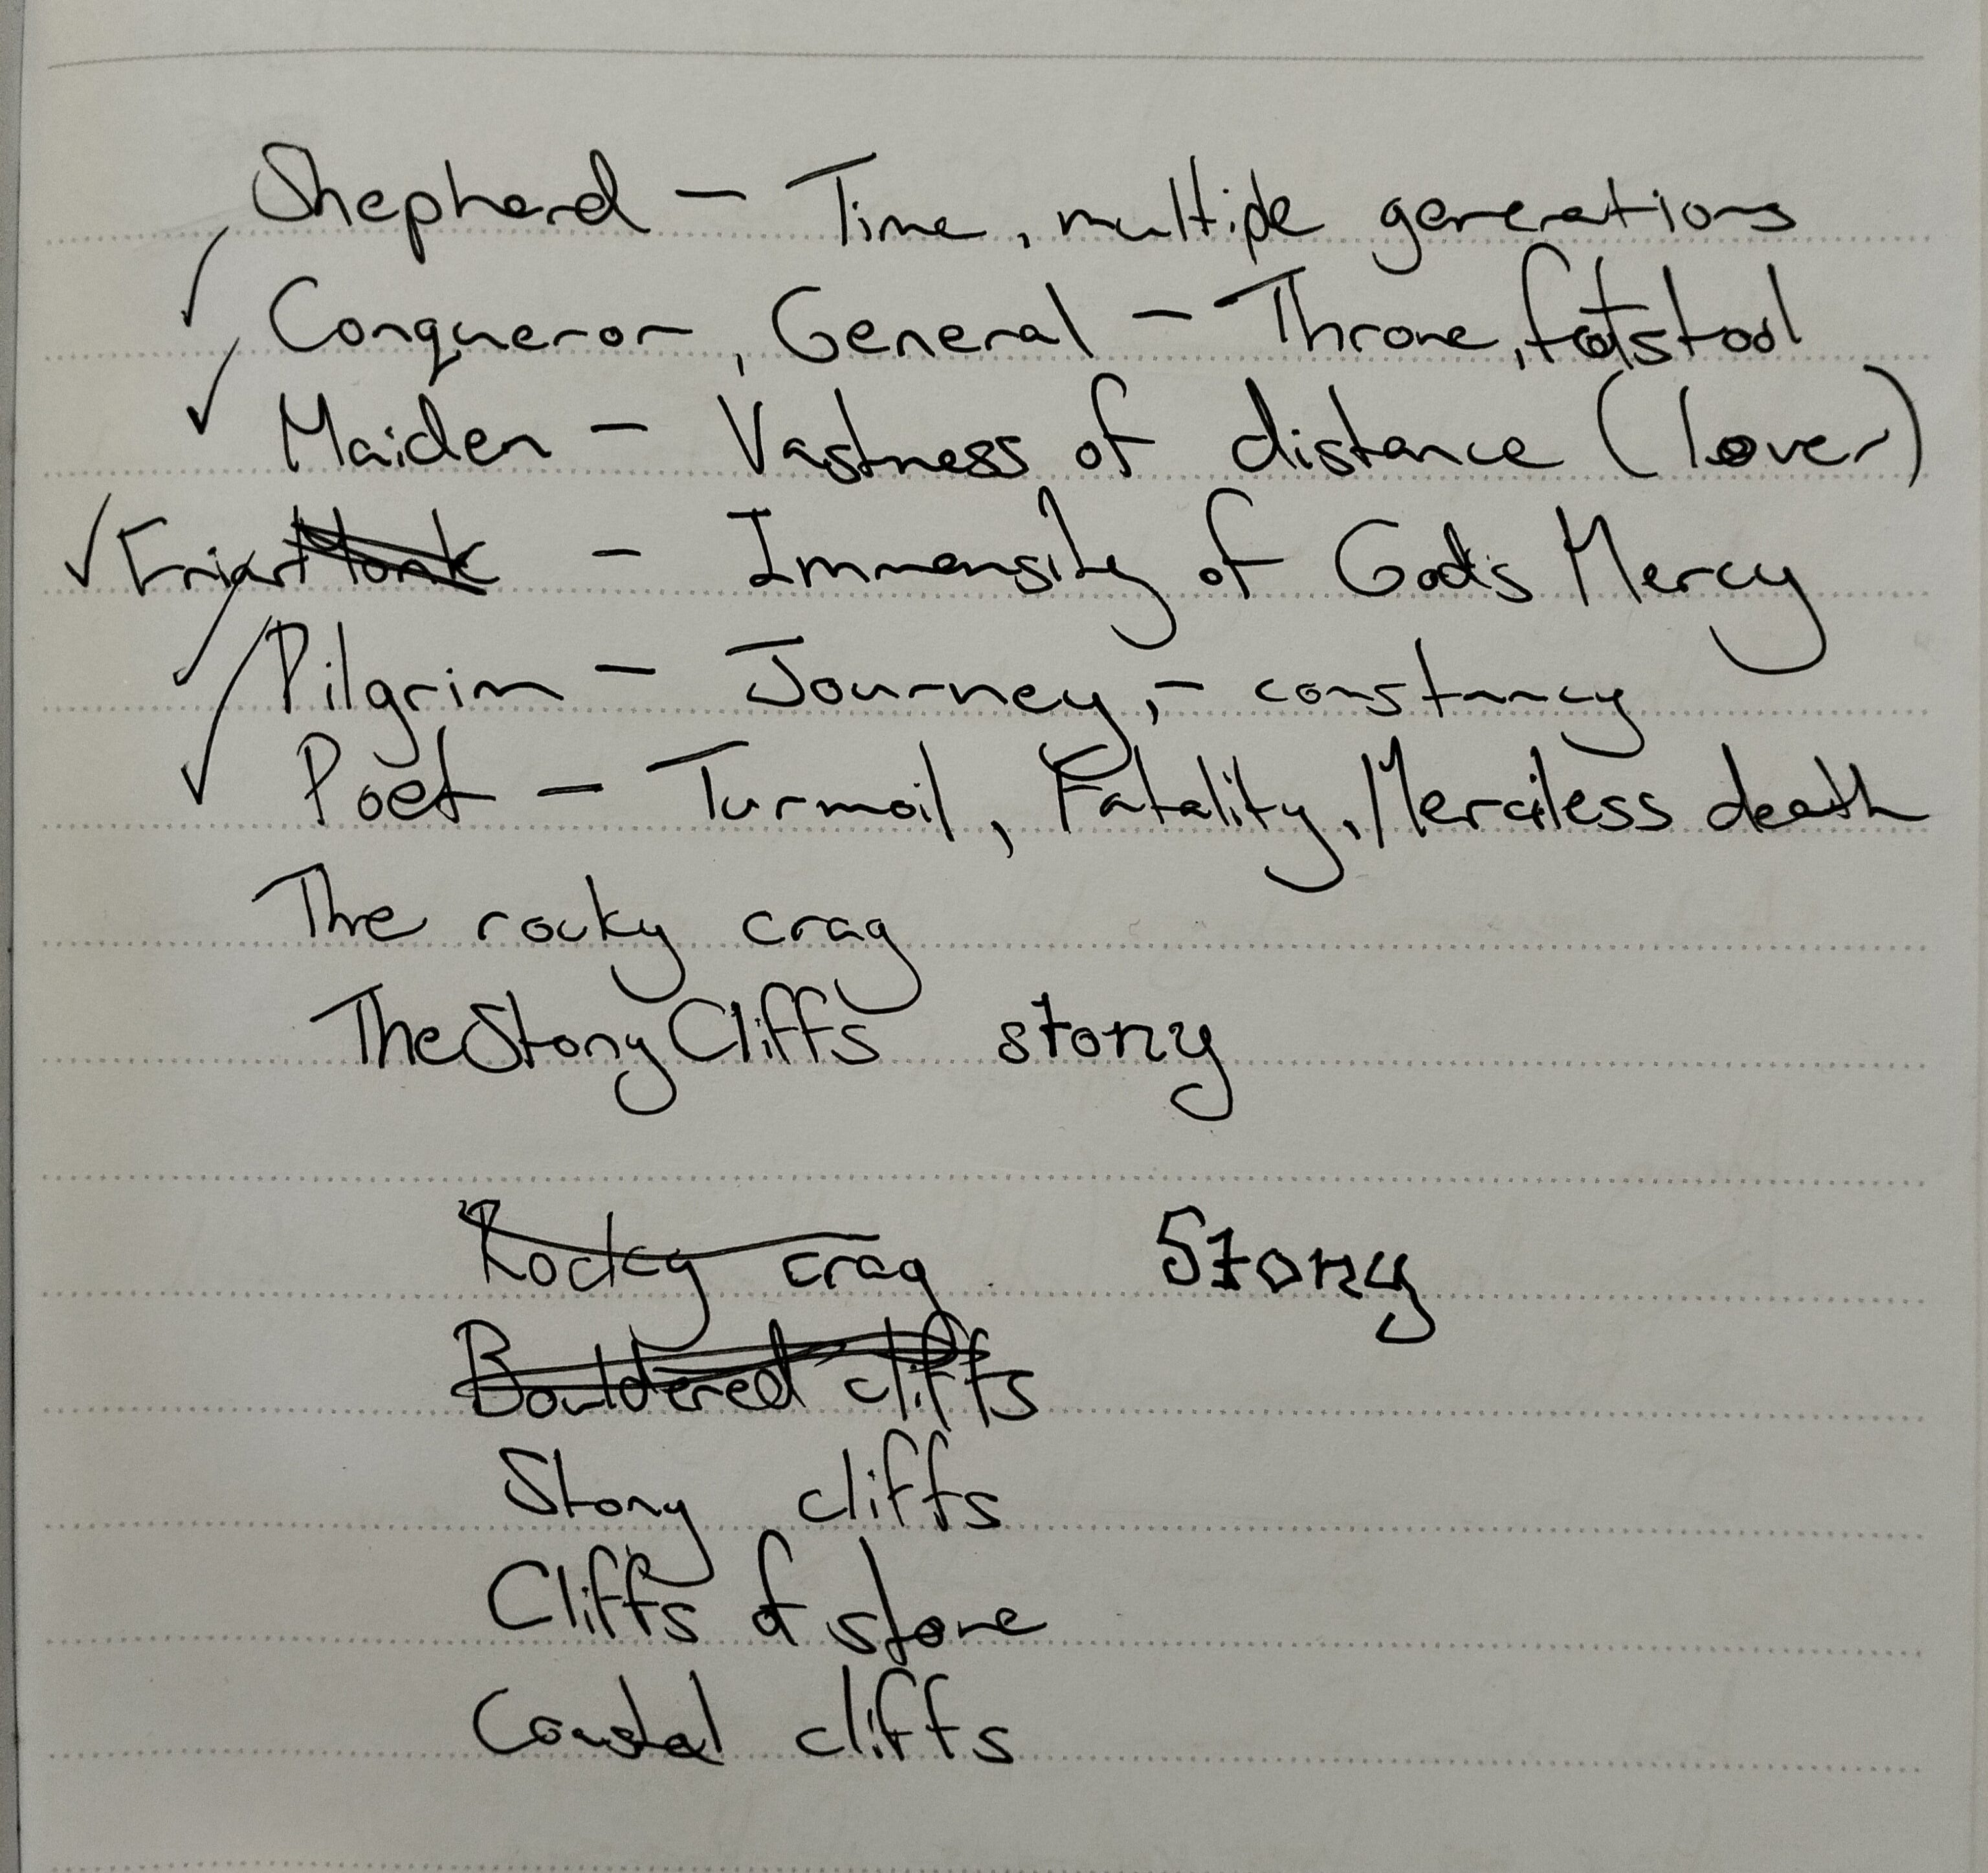 Shepherd – Time, multiple generations
✓ Conqueror, General – Throne, footstool
✓ Maiden – Vastness of distance (lover)
✓ Friar Monk – Immensity of God's Mercy
✓ Pilgrim – Journey, – constancy
✓ Poet – Turmoil, Fatality, Merciless death
The rocky crag
The Stony Cliffs stony
Rocky crag Stony
Bouldered cliffs
Stony cliffs
Cliffs of stone
Coastal cliffs